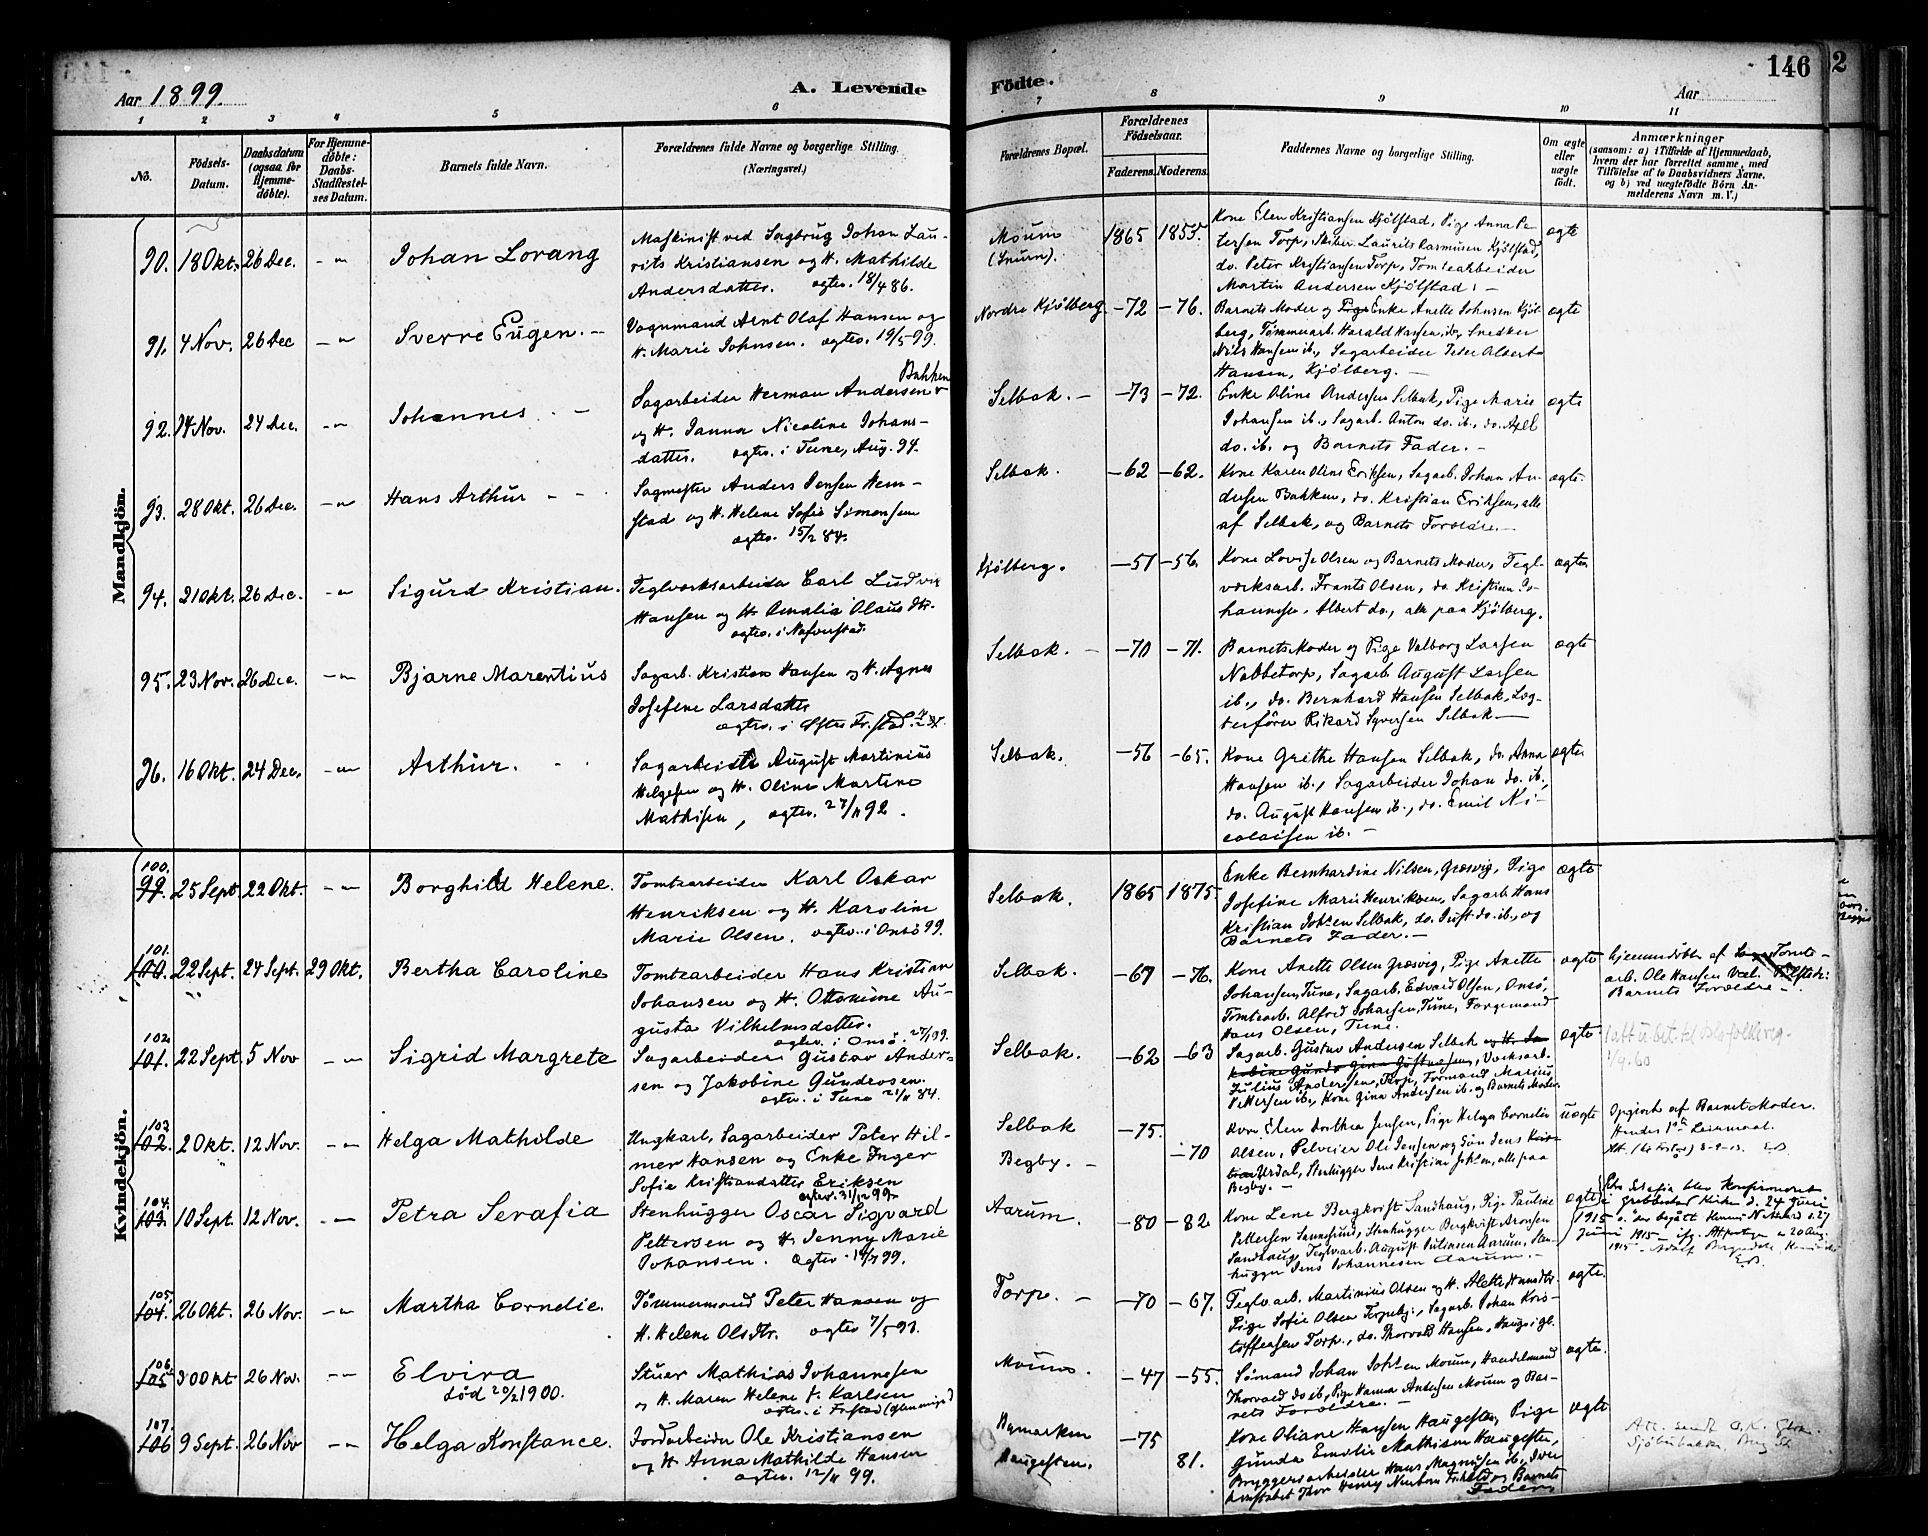 Aar 1899.
A. Levende
Födte.
146
2
Aar
1 2 3 4 5 6 7 8 9 10 11
No.
Födsels-
Datum.
Daabsdatum
(ogsaa for
Hjemme-
døbte).
For Hjemme-
døbte:
Daabs-
Stadfæstel-
ses Datum.
Barnets fulde Navn.
Forældrenes fulde Navne og borgerlige Stilling.
(Næringsvei.)
Forældrenes Bopæl.
Forældrenes
Födselsaar.
Faderens. Moderens.
Faddernes Navne og borgerlige Stilling.
Om ægte
eller
uægte
født.
Anmærkninger
(saasom: a) i Tilfælde af Hjemmedaab,
hvem der har forrettet samme, med
Tilföielse af to Daabsvidners Navne,
og b) ved uægtefødte Börn An-
melderens Navn m. V.)
Mandkjön.
90. 18 Okt. 26 Dec. Johan Lorang
Maskinist ved Sagbrug Johan Lau-
rits Kristiansen og H. Mathilde
Andersdatter. ægtev. 18/4 86.
Moum
(Snum).
1865 1855.
Kone Elen Kristiansen Kjölstad, Pige Anna Pe-
tersen Torp, Skiber Laurits Rasmusen Kjölstad,
do. Peter Kristiansen Torp, Tomtearbeider
Martin Andersen Kjölstad. -
ægte
91. 4 Nov. 26 Dec Sverre Eugen. -
Vognmand Arnt Olaf Hansen og
H. Marie Johnsen. ægtev. 19/5 99.
Nordre Kjölberg -72 -76.
Barnets Moder og Enke Anette Johnsen Kjöl-
berg, Tømmerarb. Harald Hansen ib., Snedker
Nils Hansen ib., Sagarbeider Peter Albert
Hansen, Kjölberg. -
ægte
92. 14 Nov. 24 Dec. Johannes
Bakken
Sagarbeider Herman Andersen
og H. Janna Nicoline Johans-
datter. ægtev. i Tune, Aug. 94.
Selbak. -73 -72.
Enke Oline Andersen Selbak, Pige Marie
Johansen ib., Sagarb. Anton do. ib., do. Axel
do. ib. og Barnets Fader. -
ægte
93. 28 Okt. 26 Dec. Hans Arthur
Sagmester Anders Jensen Hem-
stad og H. Helene Sofie Simensen
ægtev. 15/2 84.
Selbak. -62 -62.
Kone Karen Oline Eriksen, Sagarb. Johan An-
dersen Bakken, do. Kristian Eriksen, alle
af Selbak, og Barnets Forældre. -
ægte
94. 21 Okt. 26 Dec. Sigurd Kristian.
Teglverksarbeider Carl Ludvig
Hansen og H. Amalia Olausdtr.
ægtev. i Nafverstad.
Kjölberg. -51 -56.
Kone Lovise Olsen og Barnets Moder, Tegl-
værksarb. Frants Olsen, do. Kristian Jo-
hannesen, Albert do., alle paa Kjölberg.
ægte
95. 23 Nov. 26 Dec. Bjarne Marentius
Sagarb. Kristian Hansen og H. Agnes
Josefine Larsdatter
ægtev. i Östre Fr.stad.
Selbak. -70 -71.
Barnets Moder og Pige Valborg Larsen
Nabbetorp, Sagarb. August Larsen
ib., do. Bernhard Hansen Selbak, Log-
terförer Rikard Syversen Selbak -
ægte
96. 16 Okt. 24 Dec. Arthur.
Sagarbeider August Martinius
Helgesen og H. Oline Martine
Mathisen, ægtev. 27/11 92.
Selbak. -56 -65.
Kone Grithe Hansen Selbak, do. Anna
Hansen ib., Sagarbeider Johan do. ib.,
do. August Hansen ib., do. Emil Ni-
colaisen ib. -
ægte
Kvindekjön.
100.
99. 25 Sept. 22 Okt. Borghild Helene.
Tomtearbeider Karl Oskar
Henriksen og H. Karoline
Marie Olsen. ægtev. i Onsö 99.
Selbak. 1865 1875.
Enke Bernhardine Nilsen, Græsvig, Pige
Josefine Marie Henriksen, Sagarb. Hans
Kristian Johsen Selbak, do. Just do. ib., og
Barnets Fader. -
ægte
101.
100. 22 Sept. 24 Sept. 29 Okt. Bertha Caroline
Tomtearbeider Hans Kristian
Johansen og H. Ottomine Au-
gusta Vilhelmsdatter.
ægtev. i Onsö 99.
Selbak. -67 -76.
Kone Anette Olsen Græsvig, Pige Anette
Johansen, Tune, Sagarb. Edvard Olsen, Onsö,
Tomtearb. Alfred Johansen, Tune, Forgemand
Hans Olsen, Tune.
ægte
hjemmedöbt af Tomte-
arb. Ole Hansen
Barnets Forældre -
102
101. 22 Sept. 5 Nov Sigrid Margrete
Sagarbeider Gustav Ander-
sen og Jakobine Gundersen.
ægtev. i Tune 84.
Selbak. -62 -63
Sagarb. Gustav Andersen Selbak
Julius Andersen, Torp, Formand Marius
Pettersen ib., Kone Gina Andersen ib. og Barnets Moder.
ægte
1/9.60
103
102. 2 Okt. 12 Nov. Helga Mathilde
Ungkarl, Sagarbeider Peter Hil-
mer Hansen og Enke Inger
Sofie Kristiansdatter Eriksen
ægtev. 31/12 99
Selbak
Begby. -
-75. -70
Elen Dorthea Jensen, Pige Helga Cornelie
Olsen, Ole Jensen og Søn Jens
Begby. -
uægte
Opgivet af Barnets Moder.
Hendes 1ste Leiermaal.
104.
103. 10 Sept. 12 Nov. Petra Serafia
Stenhugger Oscar Sigvard
Pettersen og H. Jenny Marie
Johansen. Ægtev. 99.
Aarum. -80 -82
Kone Lene Bergkvist Sandhaug, Pige Pauline
Pettersen, Stenhugger Bergkvist Aronsen
Sandhaug, Teglvarb. August Julinsen Aarum, Sten-
hugger Jens Johannesen Aarum. -
ægte
Petra Serafia blev konfirmeret
i Kirke d. 24 juni
1915
105.
104. 26 Okt. 26 Nov. Martha Cornelie.
Tömmermand Peter Hansen og
H. Helene Olsdtr. ægtev 7/5 93.
Torp. - -70 -67.
Teglvarb. Martinius Olsen og H. Alette Hansdtr.
Pige Sofie Olsen Torpeby, Sagarb. Johan Kris-
toffersen Torp, do. Thorvald Hansen,
ægte.
106.
105 30 Okt 26 Nov. Elvira
død 20/2 1900.
Stuer Mathias Johannesen
og H. Maren Helene f. Karlsen
ægtev. i Frstad (Glemminge)
Moum. -47 -55.
Sömand Johan Johsen Moum, Handelsmand
Thorvald do. ib., Pige Hanna Andersen Moum og Bar-
nets Forældre. -
ægte.
107.
106 9 Sept. 26 Nov Helga Konstance.
Jordarbeider Ole Kristiansen
og H. Anna Mathilde Hansen
ægtev. 12/11 99.
Bymarken
Haugesten.
-75 81.
Kone Oliane Hansen Haugesten, Pige
Gunda Emilie Mathisen Haugesten,
Bryggeriarbeider Hans Magnusen ib., Iver
Fader
ægte